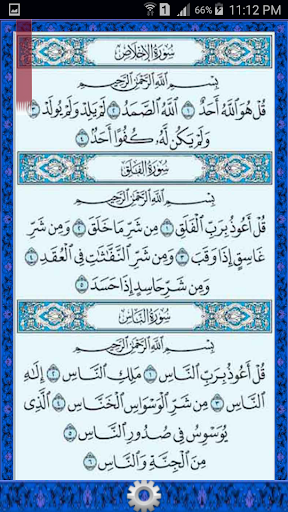 66% 11:12 PM
سُورَةُ الإِخْلَاصِ
بِسْمِ اللَّهِ الرَّحْمَٰنِ الرَّحِيمِ
قُلْ هُوَ اللَّهُ أَحَدٌ ۝١ اللَّهُ الصَّمَدُ ۝٢ لَمْ يَلِدْ وَلَمْ يُولَدْ ۝٣
وَلَمْ يَكُن لَّهُ كُفُوًا أَحَدٌ ۝٤
سُورَةُ الفَلَقِ
بِسْمِ اللَّهِ الرَّحْمَٰنِ الرَّحِيمِ
قُلْ أَعُوذُ بِرَبِّ الْفَلَقِ ۝١ مِن شَرِّ مَا خَلَقَ ۝٢ وَمِن شَرِّ
غَاسِقٍ إِذَا وَقَبَ ۝٣ وَمِن شَرِّ النَّفَّٰثَٰتِ فِي الْعُقَدِ ۝٤
وَمِن شَرِّ حَاسِدٍ إِذَا حَسَدَ ۝٥
سُورَةُ النَّاسِ
بِسْمِ اللَّهِ الرَّحْمَٰنِ الرَّحِيمِ
قُلْ أَعُوذُ بِرَبِّ النَّاسِ ۝١ مَلِكِ النَّاسِ ۝٢ إِلَٰهِ
النَّاسِ ۝٣ مِن شَرِّ الْوَسْوَاسِ الْخَنَّاسِ ۝٤ الَّذِي
يُوَسْوِسُ فِي صُدُورِ النَّاسِ ۝٥
مِنَ الْجِنَّةِ وَالنَّاسِ ۝٦